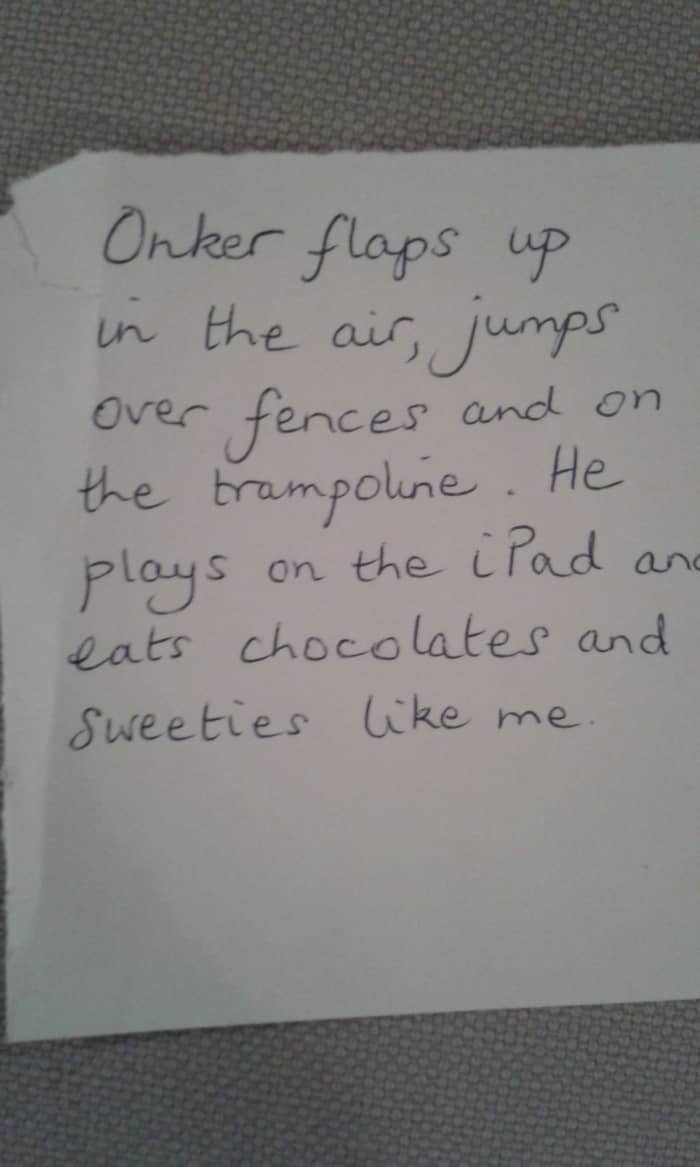 Onker flaps up
in the air, jumps
over fences and on
the trampoline. He
plays on the iPad and
eats chocolates and
sweeties like me.